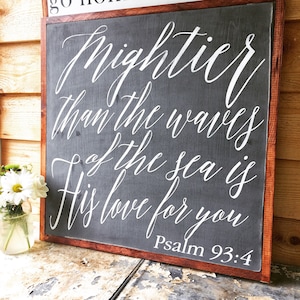 go hom
Mightier
than the waves
of the sea is
His love for you
Psalm 93:4